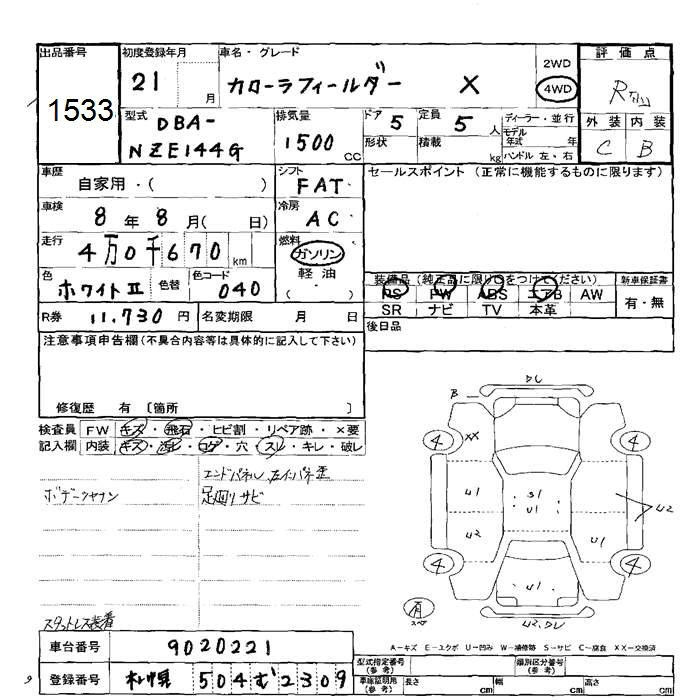 出品番号
1533
初度登録年月
21 月
車名・グレード
カローラフィールダー X
2WD
4WD
評価点
R
型式
DBA-
NZE144G
排気量
1500 CC
ドア 5
形状
定員 5 人
積載 kg
ディーラー・並行
モデル
年式 年
ハンドル 左・右
外装 内装
C B
車歴
自家用・( )
シフト
FAT
セールスポイント (正常に機能するものに限ります)
車検
8年8月( 日)
冷房
AC
走行
4万0千670 km
燃料
ガソリン
軽油
( )
色
ホワイトII
色替
色コード
040
装備品 (純正品に限り○をつけてください)
PS PW ABS エアB AW
SR ナビ TV 本革
新車保証書
有・無
R券 11,730 円
名変期限 月 日
後日品
注意事項申告欄(不具合内容等は具体的に記入して下さい)
修復歴 有 〔箇所 〕
検査員
記入欄
FW キズ・飛石・ヒビ割・リペア跡・×要
内装 キズ・汚レ・コゲ・穴・スレ・キレ・破レ
エンドパネル、左インパネ歪
ボデーケヤワン
足廻りサビ
スタットレス装着
DL
B
XX
4 4
U1 S1
U1
U2
U2
U1
4 4
U1
有
スペア
U2、DL
A-キズ E-エクボ U-凹み W-補修跡 S-サビ C-腐食 XX-交換済
車台番号 9020221
登録番号 札幌 504 む 2309
型式指定番号
(参考)
類別区分番号
(参考)
車庫証明用
(参考)
長さ cm 幅 cm 高さ cm